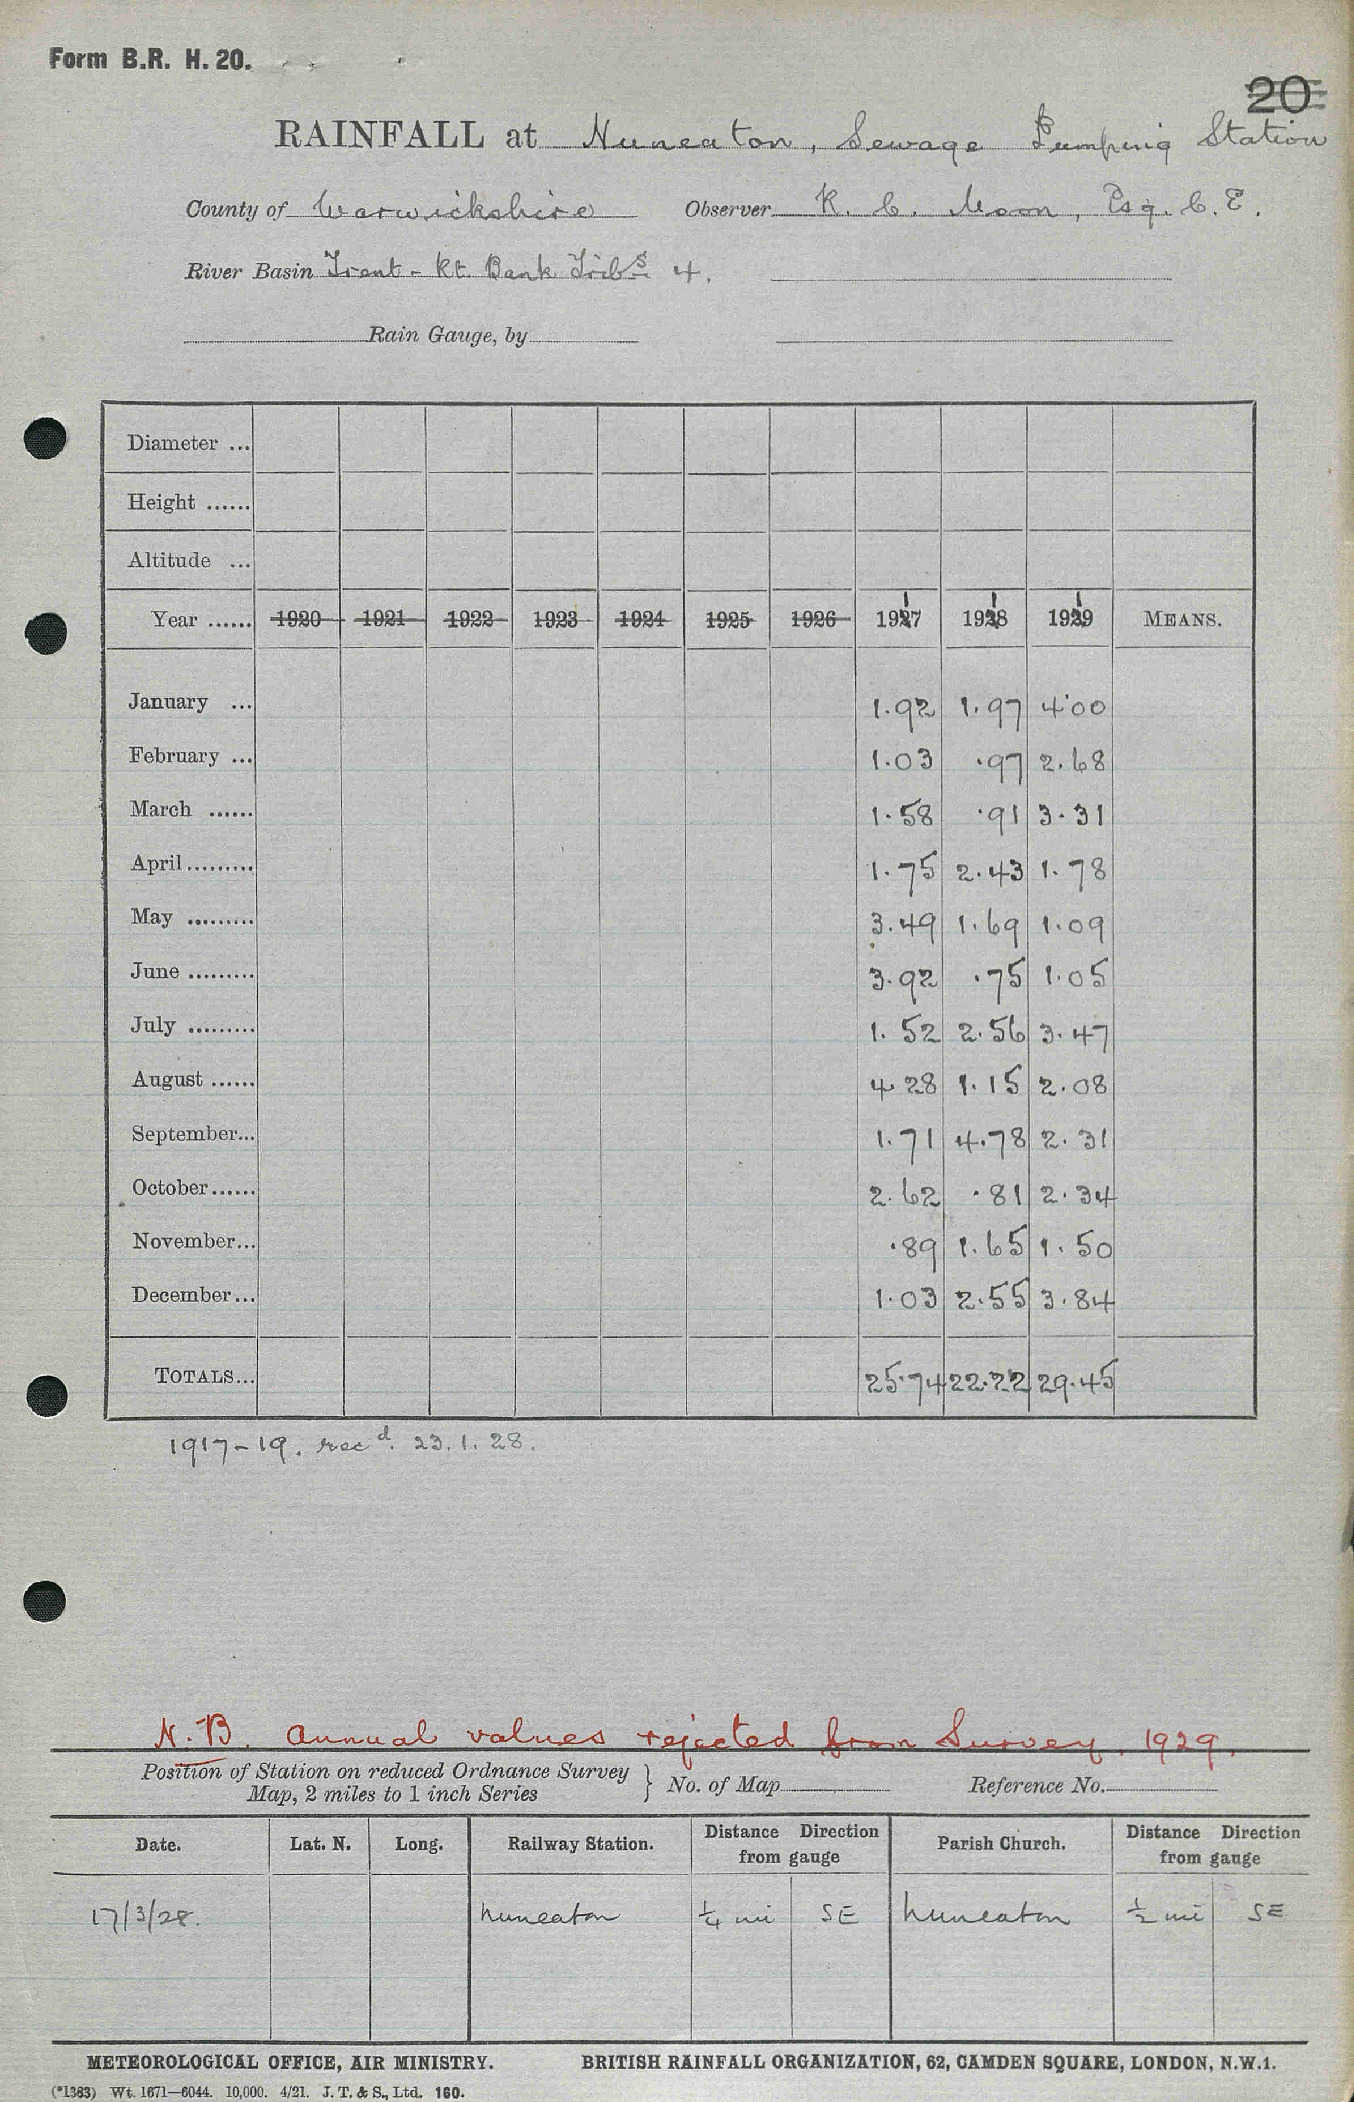 Form B.R. H. 20.
20
RAINFALL at Nuneaton, Sewage Pumping Station
County of Warwickshire Observer R. C. Moon, Esq. C.E.
River Basin Trent - Rt. Bank Tribs 4.
Rain Gauge, by
Diameter ...
Height ......
Altitude ...
Year ...... 1920 1921 1922 1923 1924 1925 1926 1917 1918 1919 MEANS.
January ... 1.92 1.97 4.00
February ... 1.03 .97 2.68
March ...... 1.58 .91 3.31
April ......... 1.75 2.43 1.78
May ......... 3.49 1.69 1.09
June ......... 3.92 .75 1.05
July ......... 1.52 2.56 3.47
August ...... 4 28 1.15 2.08
September... 1.71 4.78 2.31
October...... 2.62 .81 2.34
November... .89 1.65 1.50
December... 1.03 2.55 3.84
TOTALS... 25.74 22.22 29.45
1917-19. recd. 23.1.28.
N.B. Annual values rejected from Survey. 1929.
Position of Station on reduced Ordnance Survey
Map, 2 miles to 1 inch Series } No. of Map Reference No.
Date. Lat. N. Long. Railway Station. Distance Direction from gauge Parish Church. Distance Direction from gauge
17/3/28. Nuneaton ¼ mi SE Nuneaton ½ mi SE
METEOROLOGICAL OFFICE, AIR MINISTRY. BRITISH RAINFALL ORGANIZATION, 62, CAMDEN SQUARE, LONDON, N.W.1.
(*1383) Wt. 1671—6044. 10,000. 4/21. J. T. & S., Ltd. 160.